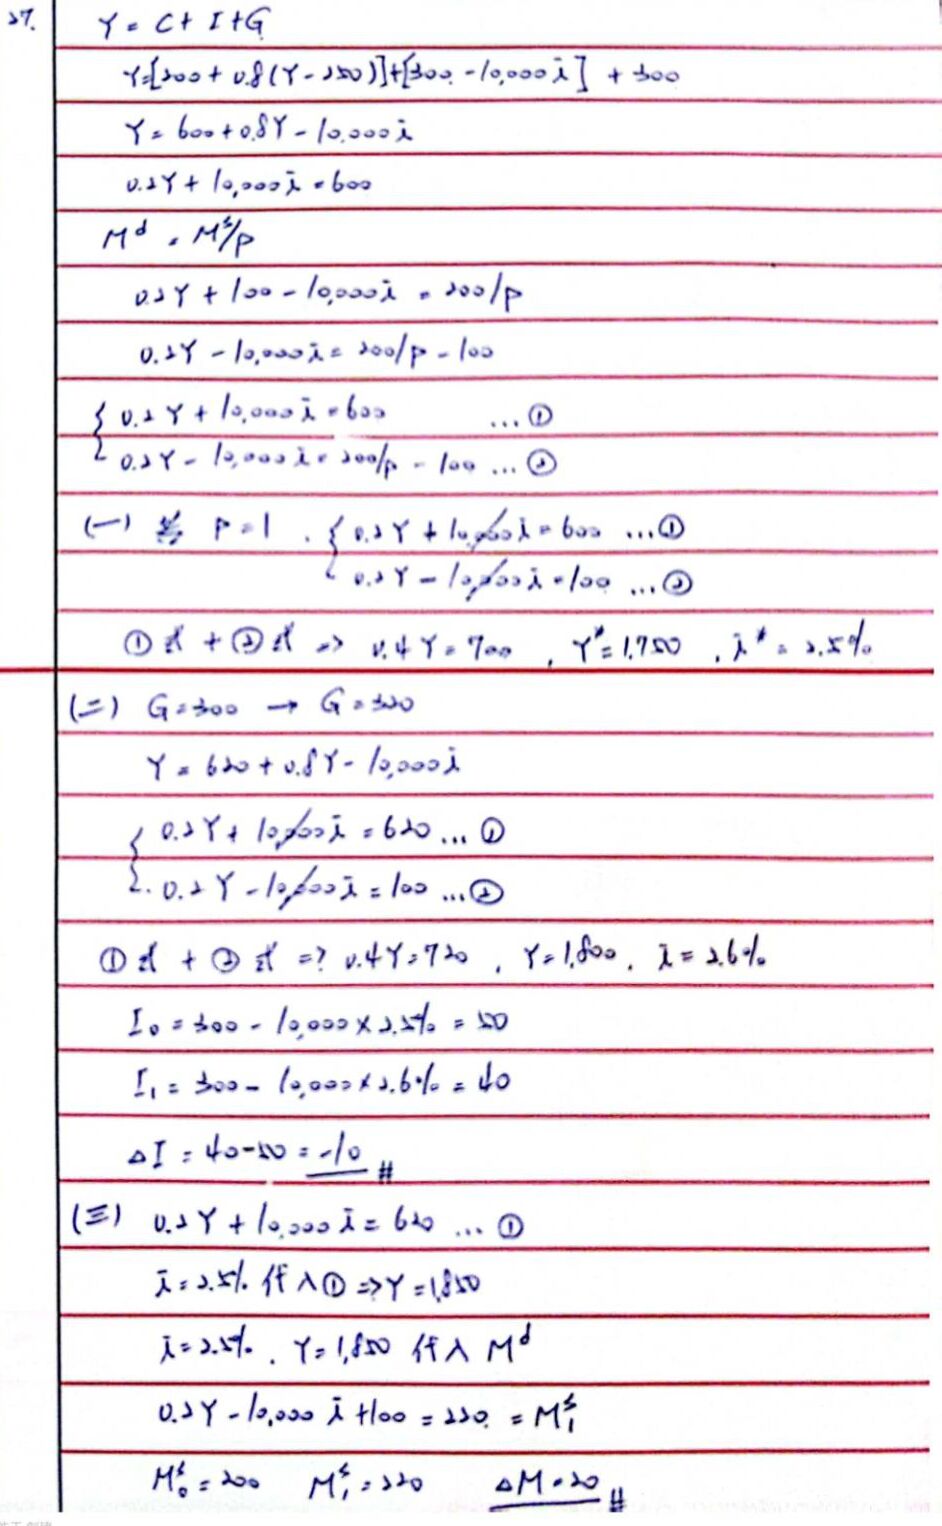 27. Y = C + I + G
Y=[200 + 0.8(Y - 250)]+[300 - 10,000 i] + 300
Y = 600 + 0.8Y - 10,000 i
0.2Y + 10,000 i = 600
M^d = M^s/P
0.2Y + 100 - 10,000 i = 200/P
0.2Y - 10,000 i = 200/P - 100
{ 0.2Y + 10,000 i = 600 ... ①
0.2Y - 10,000 i = 200/P - 100 ... ②
(一) 當 P = 1 . { 0.2Y + 10,000 i = 600 ... ①
0.2Y - 10,000 i = 100 ... ②
①式 + ②式 => 0.4Y = 700 , Y* = 1,750 , i* = 2.5%
(二) G = 300 → G = 320
Y = 620 + 0.8Y - 10,000 i
{ 0.2Y + 10,000 i = 620 ... ①
0.2Y - 10,000 i = 100 ... ②
①式 + ②式 => 0.4Y = 720 , Y = 1,800 , i = 2.6%
I₀ = 300 - 10,000 × 2.5% = 50
I₁ = 300 - 10,000 × 2.6% = 40
ΔI = 40 - 50 = -10 #
(三) 0.2Y + 10,000 i = 620 ... ①
i = 2.5% 代入① => Y = 1,850
i = 2.5% , Y = 1,850 代入 M^d
0.2Y - 10,000 i + 100 = 220 = M₁^s
M₀^s = 200 M₁^s = 220 ΔM = 20 #